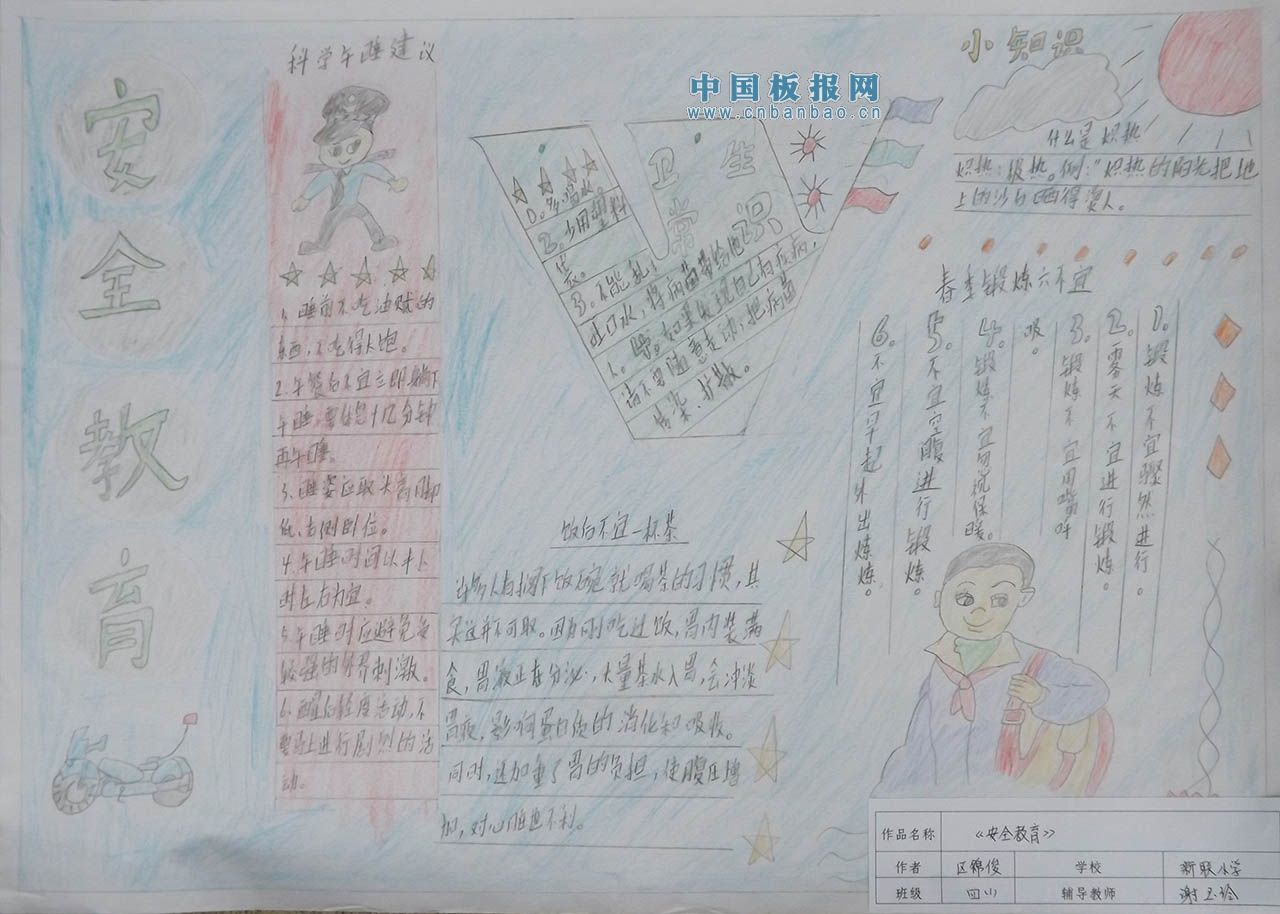 安全教育
科学午睡建议
1、睡前不吃油腻的
东西,不吃得太饱。
2、午餐后不宜立即躺下
午睡,要休息十几分钟
再午睡。
3、睡姿应取头高脚
低、右侧卧位。
4、午睡时间以
时左右为宜。
5、午睡时应避免受
较强的外界刺激。
6、醒后轻度活动,不
要马上进行剧烈的活
动。
中国板报网
www.cnbanbao.cn
卫生
常识
2。少用塑料
袋。
3。不能乱
吐口水,将病菌带给他
人。4。如果发现自己有疾病,
请不要随意走动,把病菌
传染、扩散。
饭后不宜一杯茶
许多人有撂下饭碗就喝茶的习惯,其
实这并不可取。因为刚吃过饭,胃内装满
食,胃液正在分泌,大量茶水入胃,会冲淡
胃液,影响蛋白质的消化和吸收。
同时,还加重了胃的负担,使腹压增
加,对心脏也不利。
小知识
什么是炽热
炽热:极热。例:“炽热的阳光把地
上的沙石晒得烫人。
春季锻炼六不宜
1。锻炼不宜骤然进行。
2。雾天不宜进行锻炼。
3。锻炼不宜用嘴呼
吸。
4。锻炼不宜勿视保暖。
5。不宜空腹进行锻炼。
6。不宜早起外出炼炼。
作品名称 《安全教育》
作者 区锦俊 学校 新联小学
班级 四(1) 辅导教师 谢玉玲